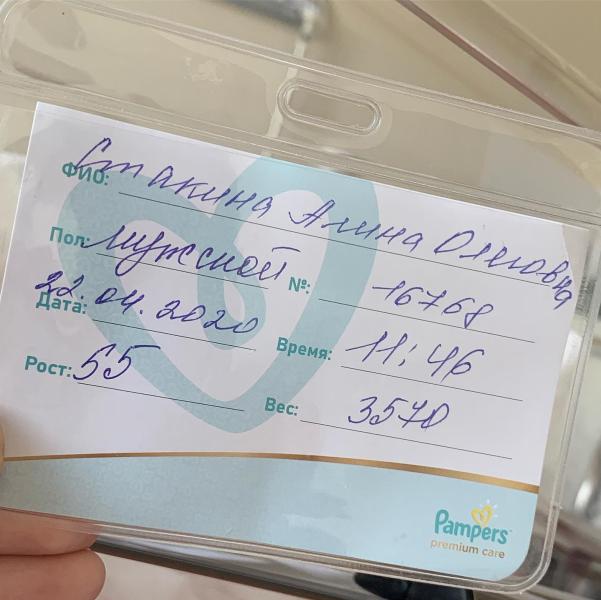 ФИО: Стакина Алина Олеговна
Пол: Мужской №: 16768
Дата: 22.04.2020 Время: 11:46
Рост: 55 Вес: 3570
Pampers
premium care